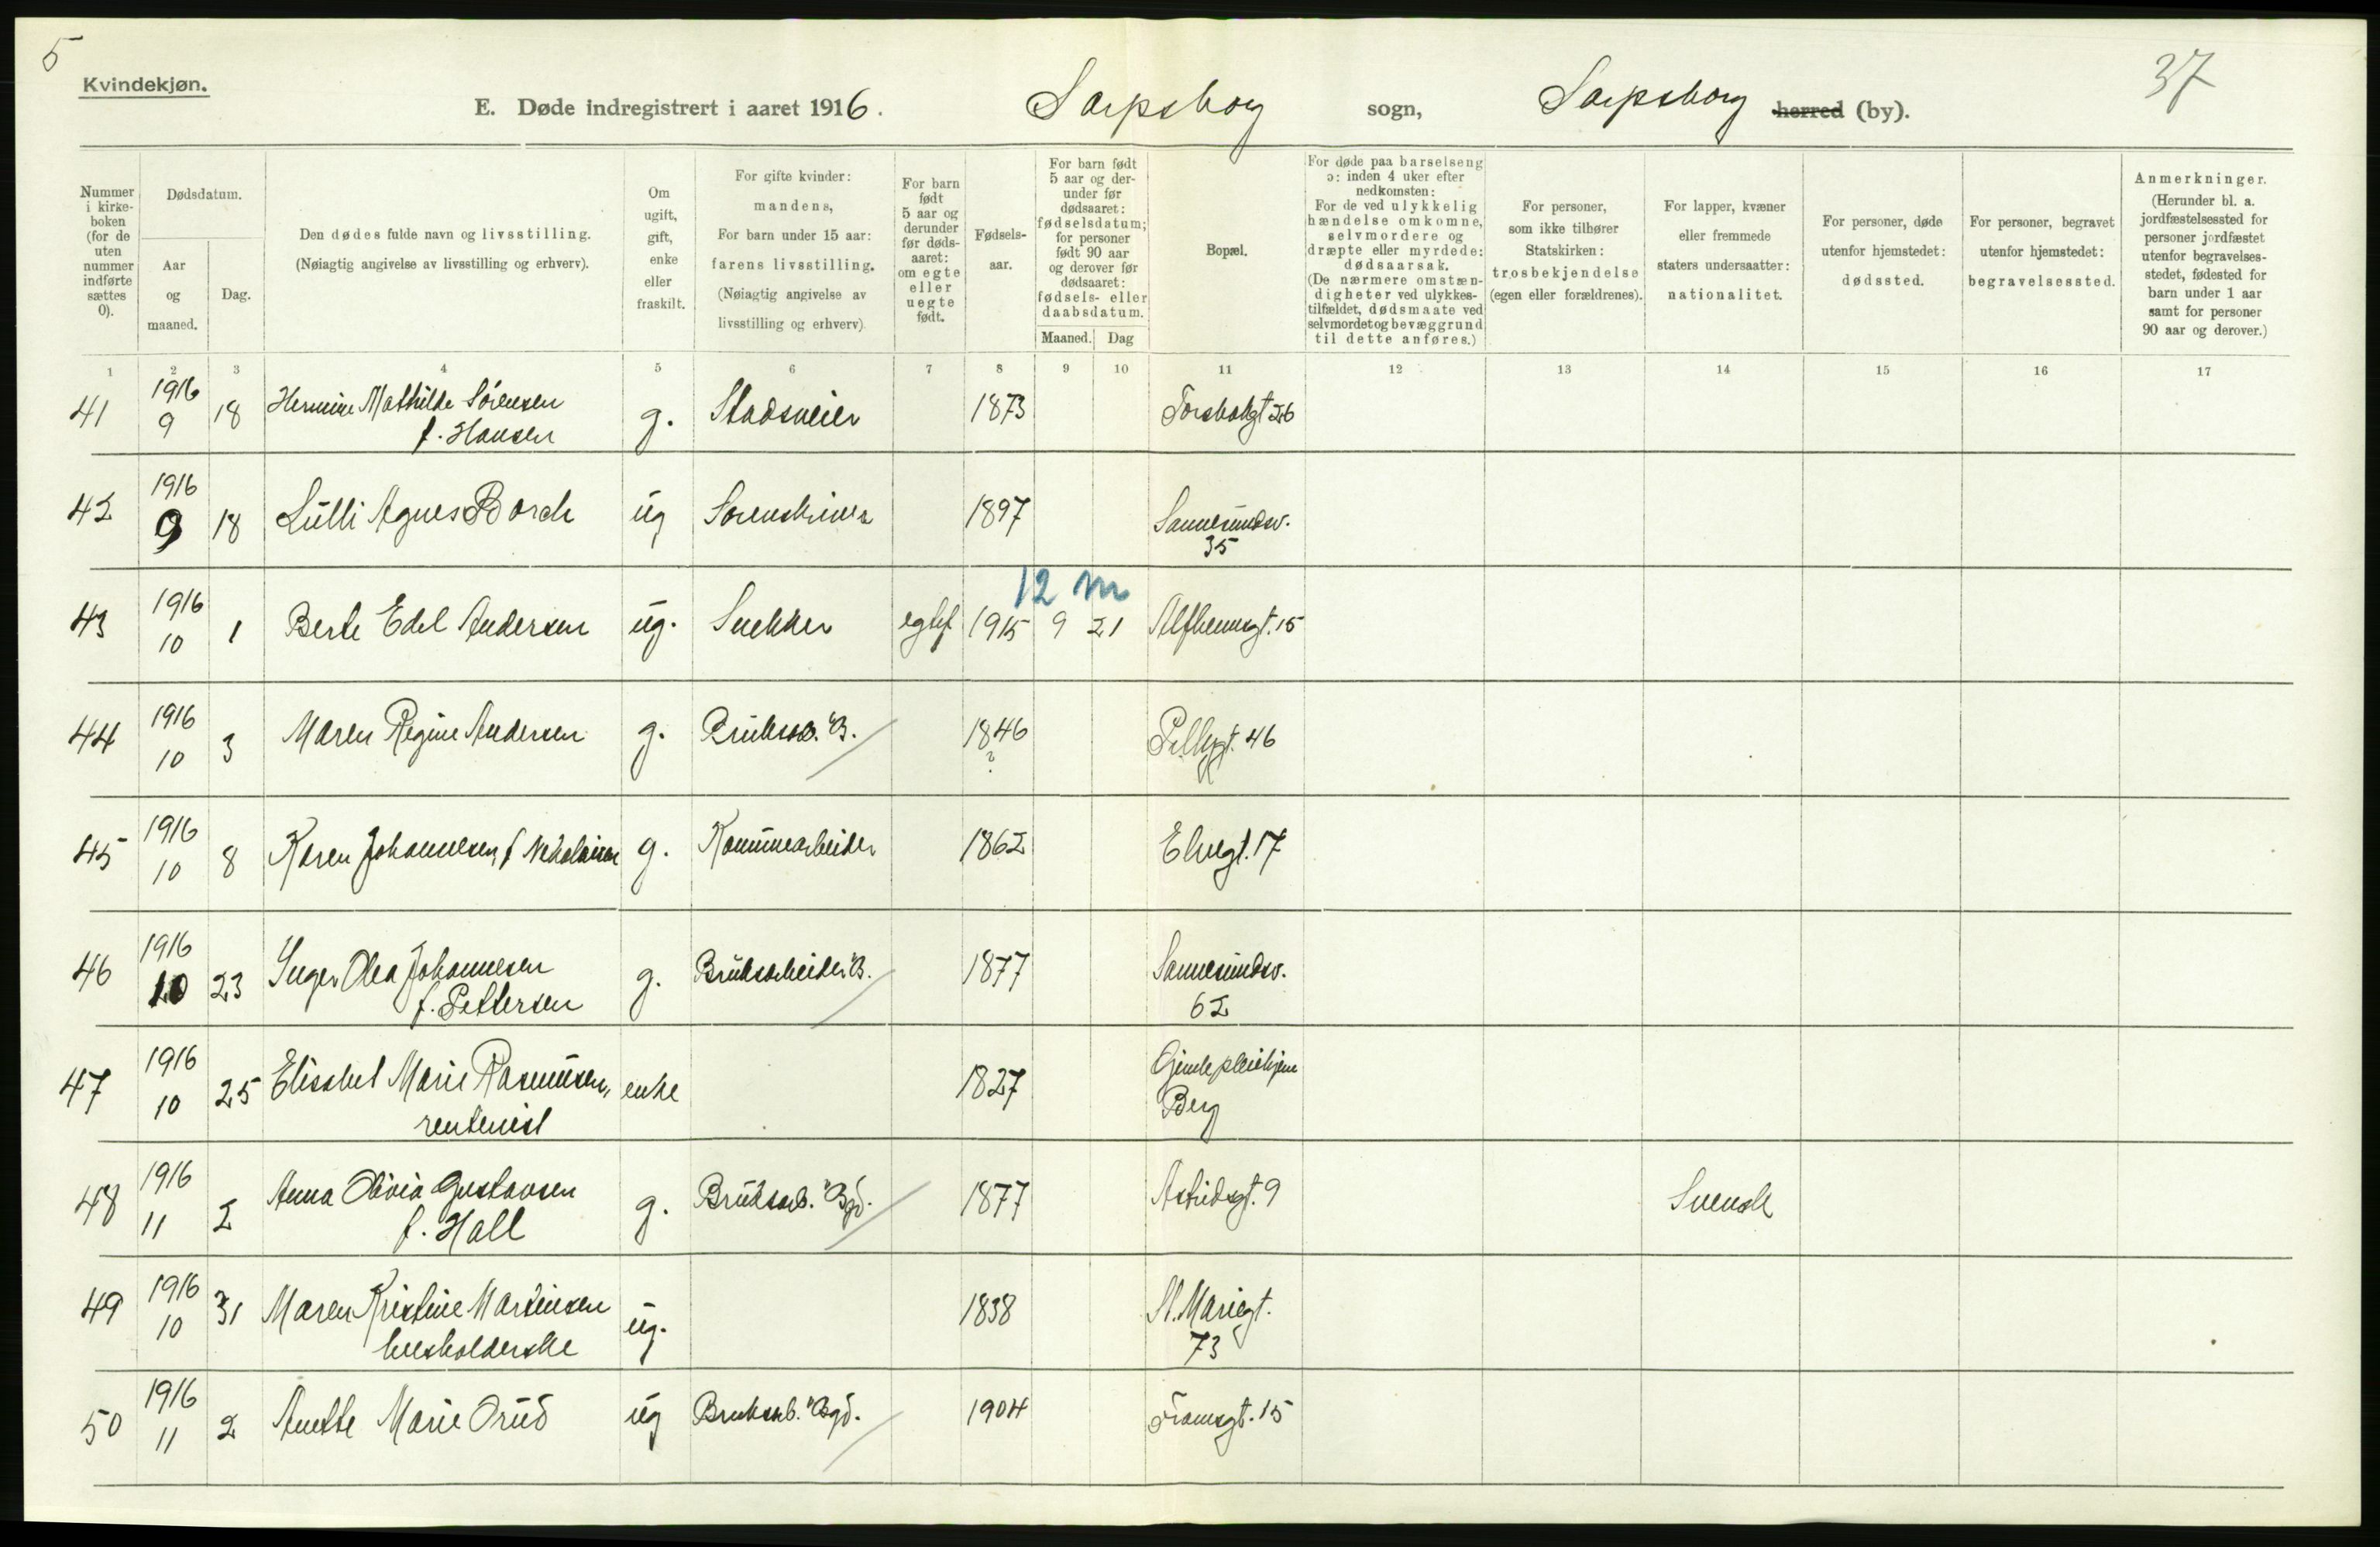 5
Kvindekjøn.
37
E. Døde indregistrert i aaret 1916. Sarpsborg sogn, Sarpsborg herred (by).
Nummer i kirke-boken (for de uten nummer indførte sættes 0).
Dødsdatum.
Aar og maaned.
Dag.
Den dødes fulde navn og livsstilling.
(Nøiagtig angivelse av livsstilling og erhverv).
Om ugift, gift, enke eller fraskilt.
For gifte kvinder: mandens,
For barn under 15 aar: farens livsstilling.
(Nøiagtig angivelse av livsstilling og erhverv)
For barn født 5 aar og derunder før døds-aaret: om egte eller uegte født.
Fødsels-aar.
For barn født 5 aar og der-under før dødsaaret: fødselsdatum; for personer født 90 aar og derover før dødsaaret: fødsels- eller daabsdatum.
Maaned. Dag
Bopæl.
For døde paa barselseng ɔ: inden 4 uker efter nedkomsten:
For de ved ulykkelig hændelse omkomne, selvmordere og dræpte eller myrdede: dødsaarsak.
(De nærmere omstæn-digheter ved ulykkes-tilfældet, dødsmaate ved selvmordet og bevæggrund til dette anføres.)
For personer, som ikke tilhører Statskirken: trosbekjendelse (egen eller forældrenes).
For lapper, kvæner eller fremmede staters undersaatter: nationalitet.
For personer, døde utenfor hjemstedet: dødssted.
For personer, begravet utenfor hjemstedet: begravelsessted.
Anmerkninger.
(Herunder bl. a. jordfæstelsessted for personer jordfæstet utenfor begravelses-stedet, fødested for barn under 1 aar samt for personer 90 aar og derover.)
1 2 3 4 5 6 7 8 9 10 11 12 13 14 15 16 17
41 1916 9 18 Hermine Mathilde Sörensen g. Stadsveier 1873 Torsbekgt 26
f. Hansen
42 1916 9 18 Lülli Agnes Borch üg Sorenskriver 1897 Sannesundsv.
35
12 m
43 1916 10 1 Berte Edel Andersen üg. Snekker egtef 1915 9 21 Alfheimsgt. 15
44 1916 10 3 Maren Regine Andersen g. Brüksarb. "B. 1846 Pellygt. 46
?
45 1916 10 8 Karen Johannesen f Nikolaisen g. Kommunearbeider 1862 Elvegt. 17
46 1916 10 23 Inger Olea Johannesen g. Brüksarbeider "B. 1877 Sannesundsv.
f. Pettersen 62
47 1916 10 25 Elisabet Marie Rasmüsen, enke 1827 Gimle pleiehjem
rentenist Berg
48 1916 11 2 Anna Olivia Gustavsen g. Brüksarb. "Bgd. 1877 Astridsgt. 9 Svensk
f. Hall
49 1916 10 31 Maren Kristine Martinsen üg. 1838 St. Mariegt.
husholderske 73
50 1916 11 2 Anette Marie Orüd üg Bruksarb. "Bgd. 1904 Framsgt. 15